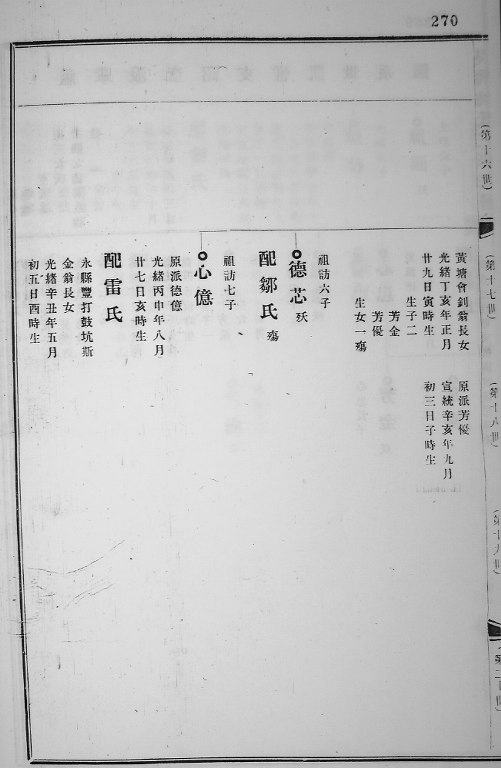 270
(第十六世)
(第十七世)
(第十八世)
(第十九世)
黃塘會釗翁長女
光緒丁亥年正月
廿九日寅時生
生子二
芳金
芳優
生女一殤
原派芳優
宣統辛亥年九月
初三日子時生
祖訪六子
德芯 殀
配鄒氏 殤
祖訪七子
心億
原派德億
光緒丙申年八月
廿七日亥時生
配雷氏
永縣豐打鼓坑斯
金翁長女
光緒辛丑年五月
初五日酉時生